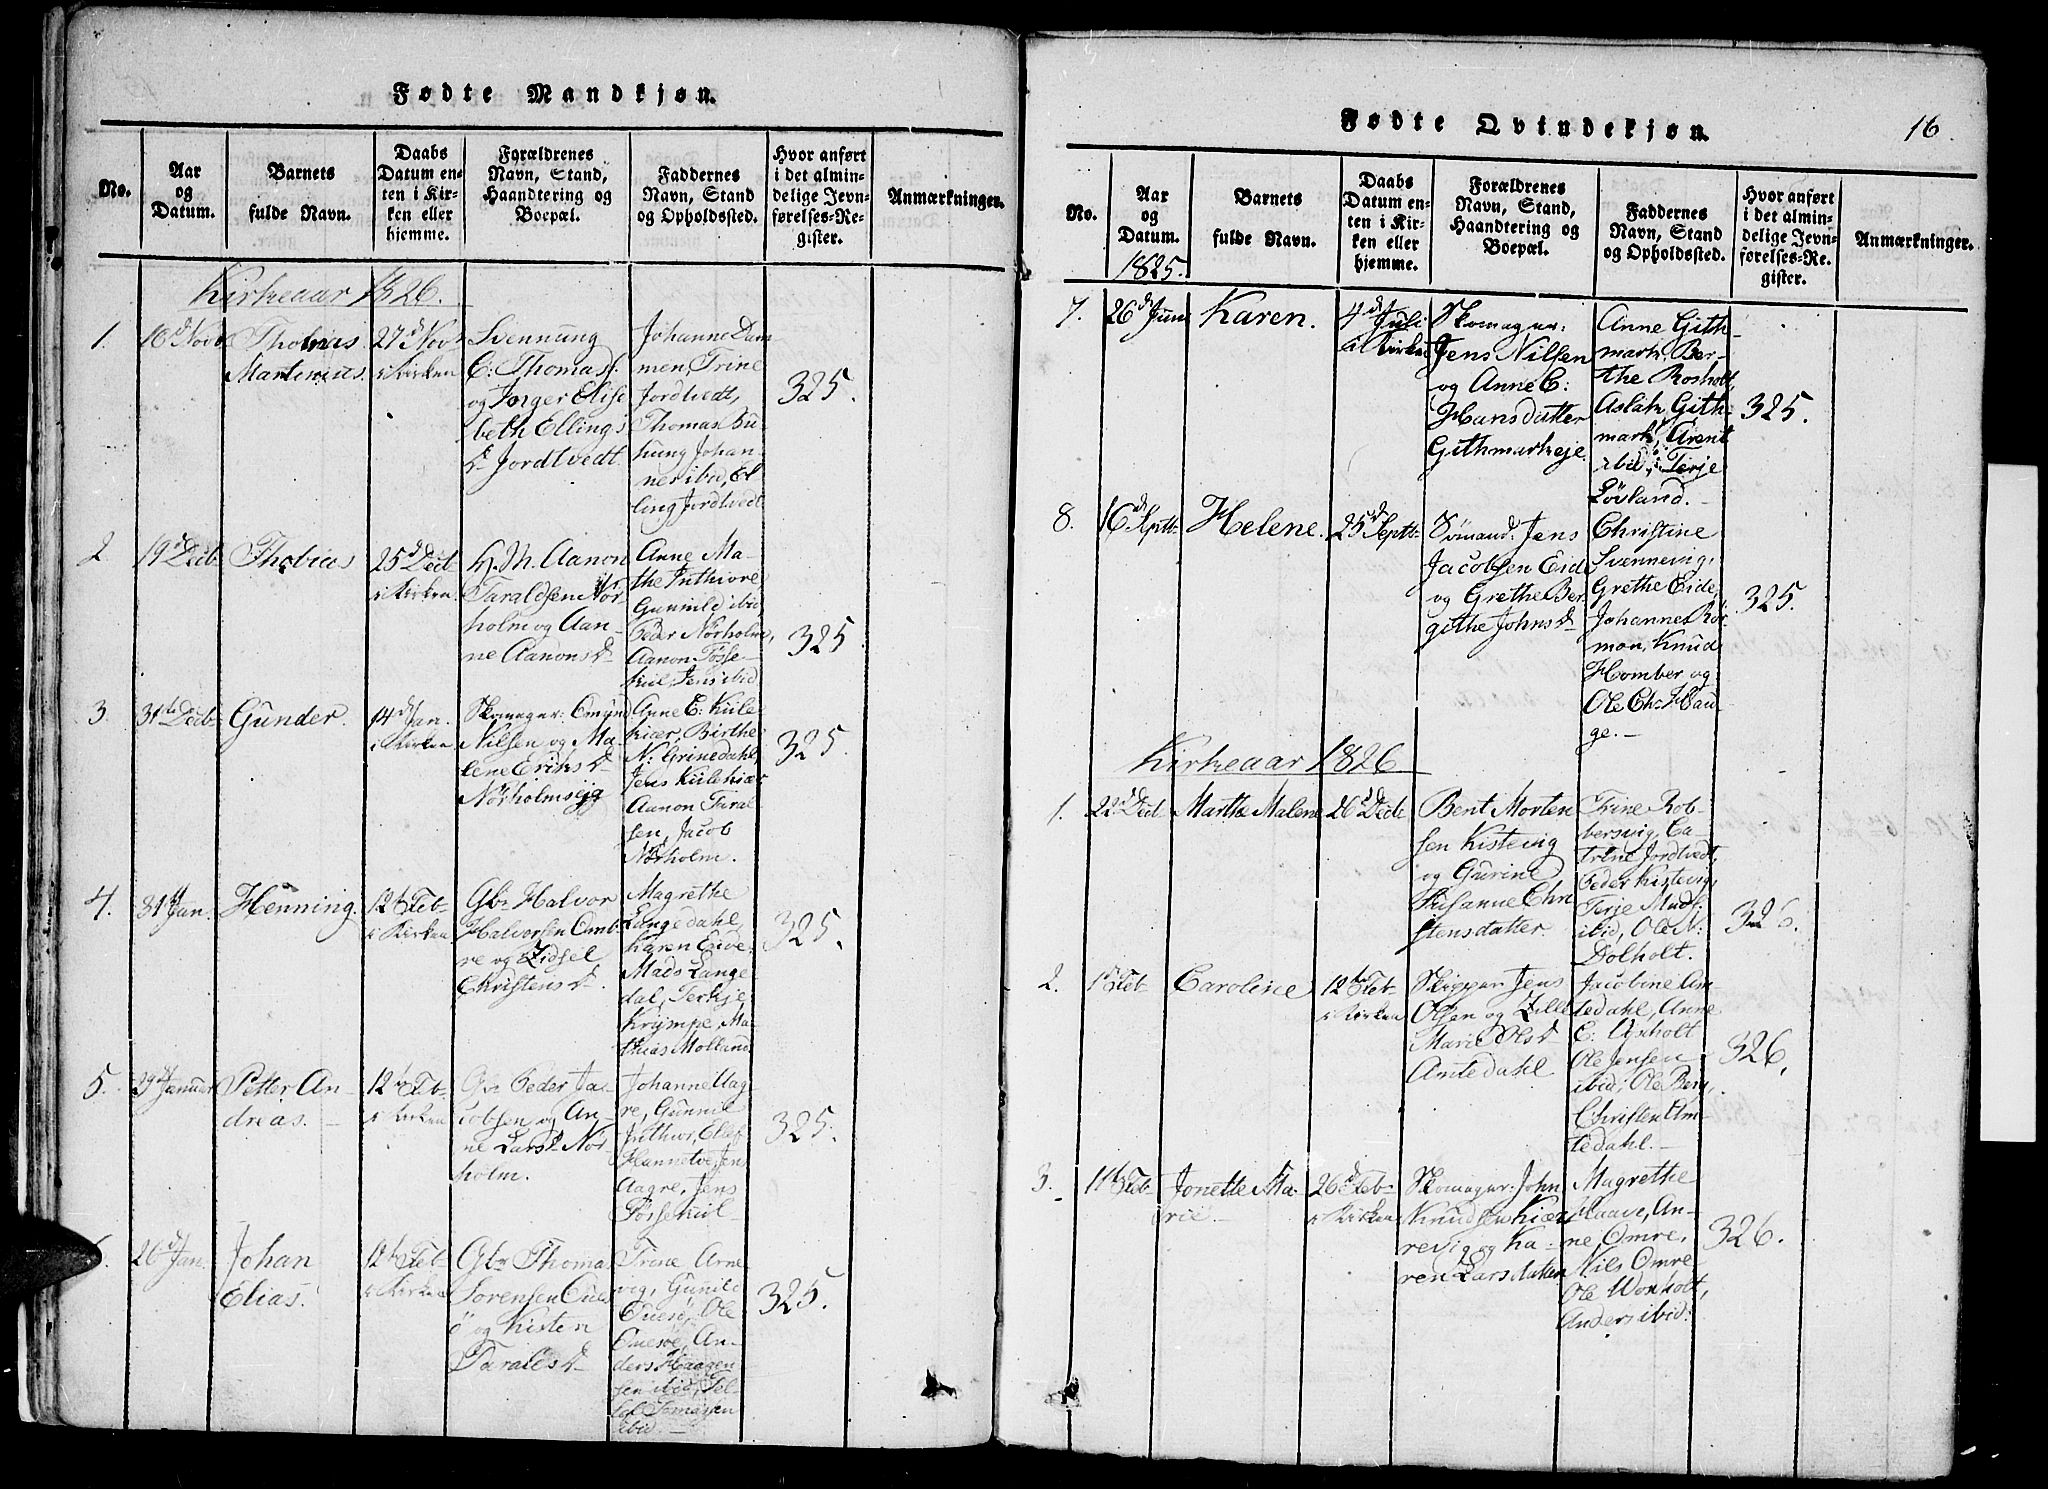 Fødte Mandkjøn.
No.
Aar
og
Datum.
Barnets
fulde Navn.
Daabs
Datum en-
ten i Kir-
ken eller
hjemme.
Forældrenes
Navn, Stand,
Haandtering og
Boepæl.
Faddernes
Navn, Stand
og Opholdssted.
Hvor anført
i det almin-
delige Jevn-
førelses-Re-
gister.
Anmærkninger.
Kirkeaar 1826.
1.
16d Novb
Thobias
Martinius.
27d Novb
i Kirken
Svennung
C: Thomass.
og Jorger Elise
beth Ellings
D. Jordtvedt.
Johanne Dam
men, Trine
Jordtvedt,
Thomas Bu-
hung Johan-
nes ibid, El
ling Jordtvedt
325.
2
19d Decb
Thobias
25d Decb
i Kirken.
H. M. Aanon
Taraldsen Nør-
holm og Aan-
ne Aanonsd.
Anne Ma-
the Inthiore
Gunnild ibid
Peder Nørholm,
Aanon Fosse-
kiil, Jens ibid
325
3.
31te Decb
Gunder.
14d Jan.
i Kirken
Skomager: Omund
Nilsen og Ma-
lene Eriksd.
Nørholmseje
Anne E: Kiile
kiær, Birthe
N: Grinedahl,
Jens Kiilekiær
Aanon Taral
sen, Jacob
Nørholm.
325.
4.
31d Jan.
Henning.
12te Feb-
i Kirken
Gbr Halvor
Halvorsen Omb.
re og Zidsel
Christensd.
Magrethe
Langedahl,
Karen Eive-
Mads Lange
dal, Terkje
Krympe, Ma-
thias Molland
325.
5.
29d Januer
Petter An-
dreas.
12te Feb-
i Kirken
Gbr Peder Ja-
cobsen og An-
ne Larsd. Nør-
holm.
Johanne Aag-
re, Gunnil
Inthior, Ellef
Hannetve, Jens
Aagre, Jens
Fossekiil-
325.
6.
26d Jan.
Johan
Elias.
12te Feb-
i Kirken
Gbr Thomas
Sorensen Ques
ö og Kisten
Taralsd.
Trine Arne
vig, Gunild
Quesö, Ole
Quesöe, An-
ders Haagen
sen ibid, Sel-
lef Tomassen
ibid.
325.
Fødte Qvindekjøn.
16.
No.
Aar
og
Datum.
1825.
Barnets
fulde Navn.
Daabs
Datum en-
ten i Kir-
ken eller
hjemme.
Forældrenes
Navn, Stand,
Haandtering og
Boepæl.
Faddernes
Navn, Stand
og Opholdssted.
Hvor anført
i det almin-
delige Jevn-
førelses-Re-
gister.
Anmærkninger.
7.
26d Juni
Karen.
4d Juli
i Kirken
Skomager:
Jens Nilsen
og Anne C:
Hansdatter
Githmarkeje.
Anne Gith-
mark, Ber-
the Rosholt,
Aslak Gith-
mark, Arent
ibid, Terje
Löuland.
325.
8.
16d Septb-
Helene.
25d Septb-
Sömand: Jens
Jacobsen Eide
og Grethe Ber
githe Johnsd.
Christine
Svennevig,
Grethe Eide,
Johannes Rör
mon, Knud
Homber og
Ole Ch: Hau-
ge.
325.
Kirkeaar 1826
1.
22d Decb
Marthe Malene
26d Decb.
Bent Morten
sen Kistevig
og Gurine
Susanne Chri
stensdatter.
Trine Rob-
bersvig, Ca-
trine Jordtvedt,
Peder Kistevig,
Terje Mads.
ibid, Ole N:
Dolholt.
326.
2.
1ste Feb
Caroline
12te Feb
i Kirken
Skipper Jens
Olsen og Zille
Marie Olsd.
Amtedahl
Jacobine Am-
tedahl, Anne
E: Voxholt
Ole Jensen
ibid, Ole Berg,
Christen Am-
tedahl.
326.
3.
11te Feb
Jonette Ma-
rie.
26d Feb-
i Kirken
Skomager: John
Knudsen Kiær
revig og Ka-
ren Larsdatter
Magrethe
Haave, An-
ne Omre,
Nils Omre
Ole Wonholt,
Anders ibid:
326.